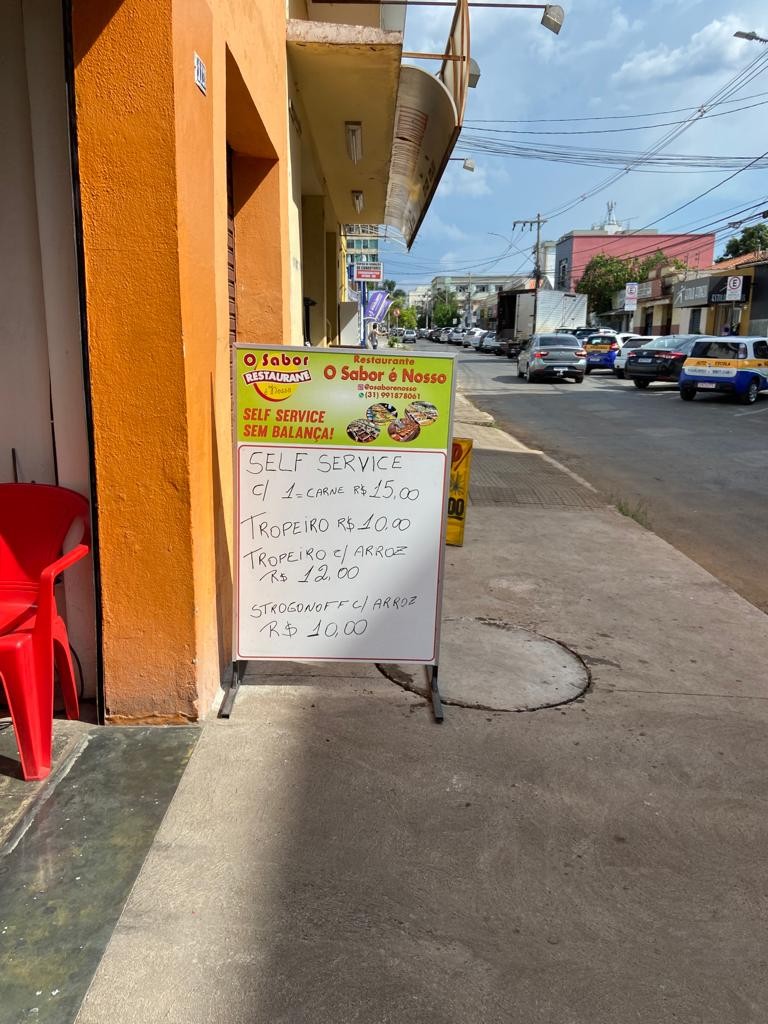 O Sabor
RESTAURANTE
é Nosso
Restaurante
O Sabor é Nosso
@osaborenosso
(31) 991878061
SELF SERVICE
SEM BALANÇA!
SELF SERVICE
C/ 1= CARNE R$ 15,00
TROPEIRO R$ 10,00
TROPEIRO C/ ARROZ
R$ 12,00
STROGONOFF C/ ARROZ
R$ 10,00
00
E
E
AUTO ESCOLA